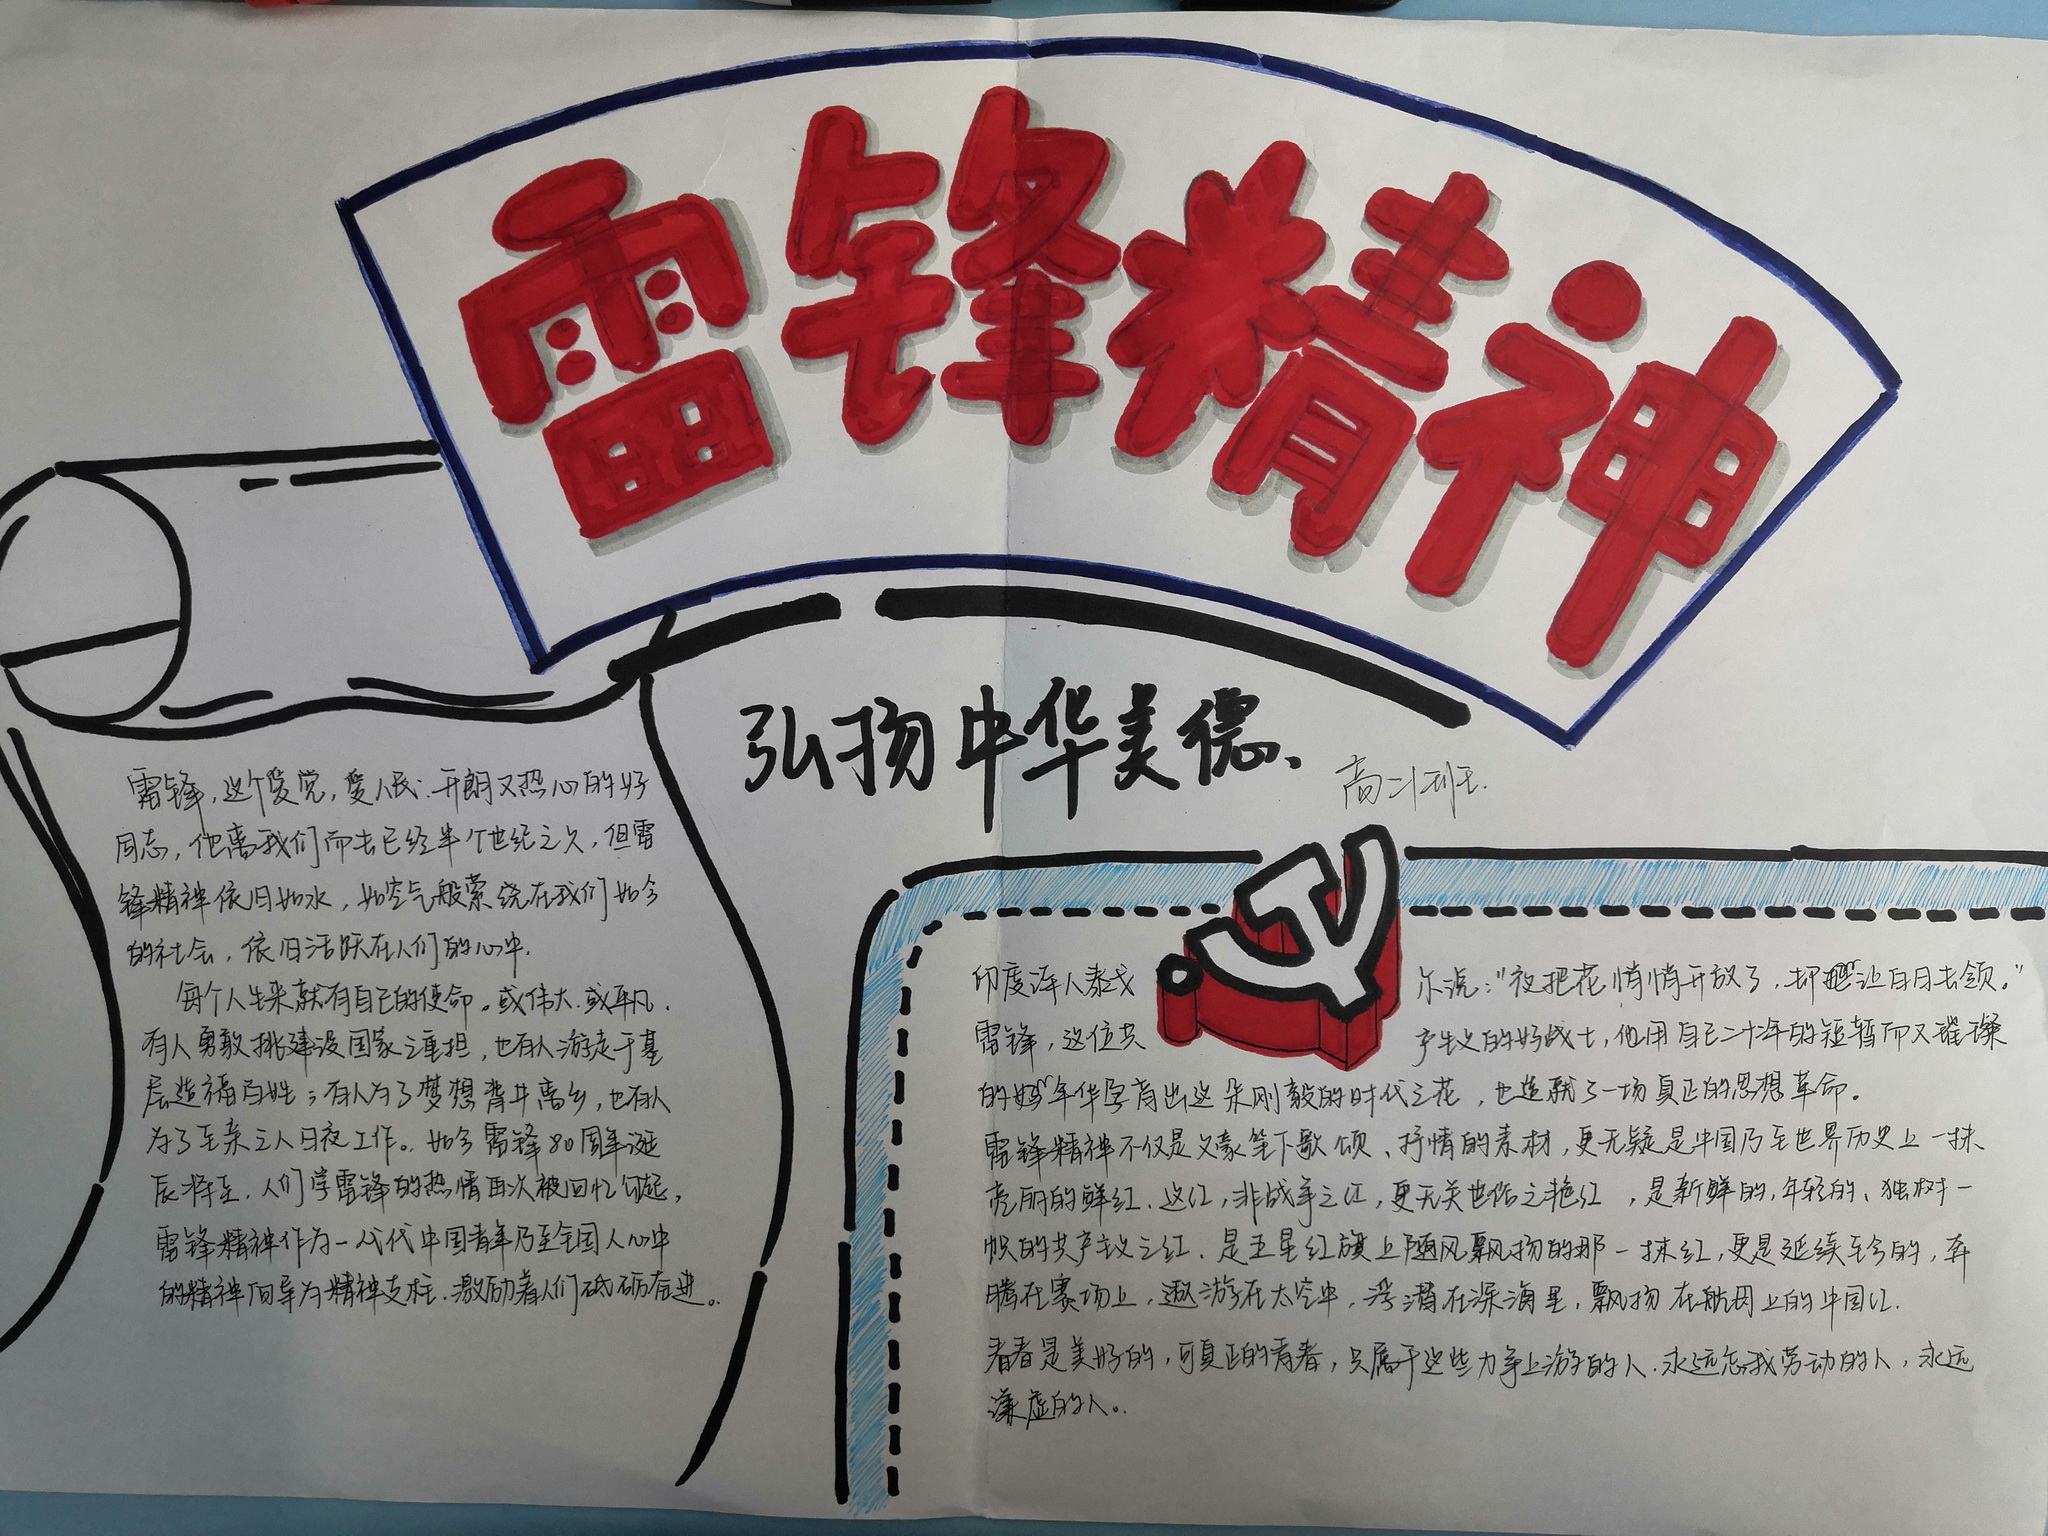 雷锋精神
弘扬中华美德、
高二班
雷锋,这个爱党,爱人民、开朗又热心的好
同志,他离我们而去已经半个世纪之久,但雷
锋精神依旧如水,如空气般萦绕在我们如今
的社会,依旧活跃在人们的心中.
每个人生来就有自己的使命。或伟大.或平凡.
有人勇敢挑建设国家之重担,也有人游走于基
层造福百姓;有人为了梦想背井离乡,也有人
为了至亲之人日夜工作。如今雷锋80周年诞
辰将至,人们学雷锋的热情再次被回忆勾起,
雷锋精神作为一代代中国青年乃至全国人心中
的精神向导为精神支柱.激励着人们砥砺奋进。
印度诗人泰戈尔说:"夜把花悄悄开放了,却让白日去领。"
雷锋,这位共产主义的好战士,他用自己二十年的短暂而又璀璨
的年华孕育出这朵刚毅的时代之花,也造就了一场真正的思想革命。
雷锋精神不仅是文豪笔下歌颂、抒情的素材,更无疑是中国乃至世界历史上一抹
亮丽的鲜红.这红,非战争之红,更无关世俗之艳红,是新鲜的,年轻的、独树一
帜的共产主义之红、是五星红旗上随风飘扬的那一抹红,更是延续至今的,奔
腾在赛场上,遨游在太空中,浮潜在深海里,飘扬在航母上的中国红.
青春是美好的,可真正的青春,只属于这些力争上游的人.永远忘我劳动的人,永远
谦虚的人。